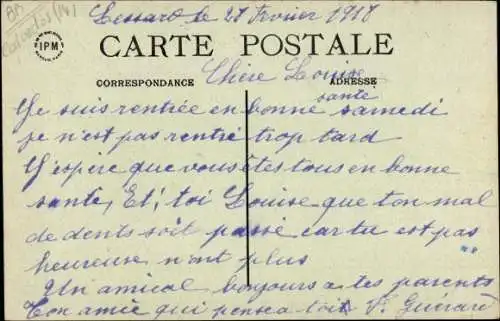 Lessard le 27 Fevrier 1918
Calvados (14)
IPM
CARTE POSTALE
CORRESPONDANCE
ADRESSE
Chère Louise
Je suis rentrée en bonne santé samedi
je n'est pas rentré trop tard
J'espère que vous êtes tous en bonne
santé, Et, toi Louise que ton mal
de dents soit passé car tu est pas
heureuse n'ont plus
Un amical bonjours a tes parents
Ton amie qui pensea toi